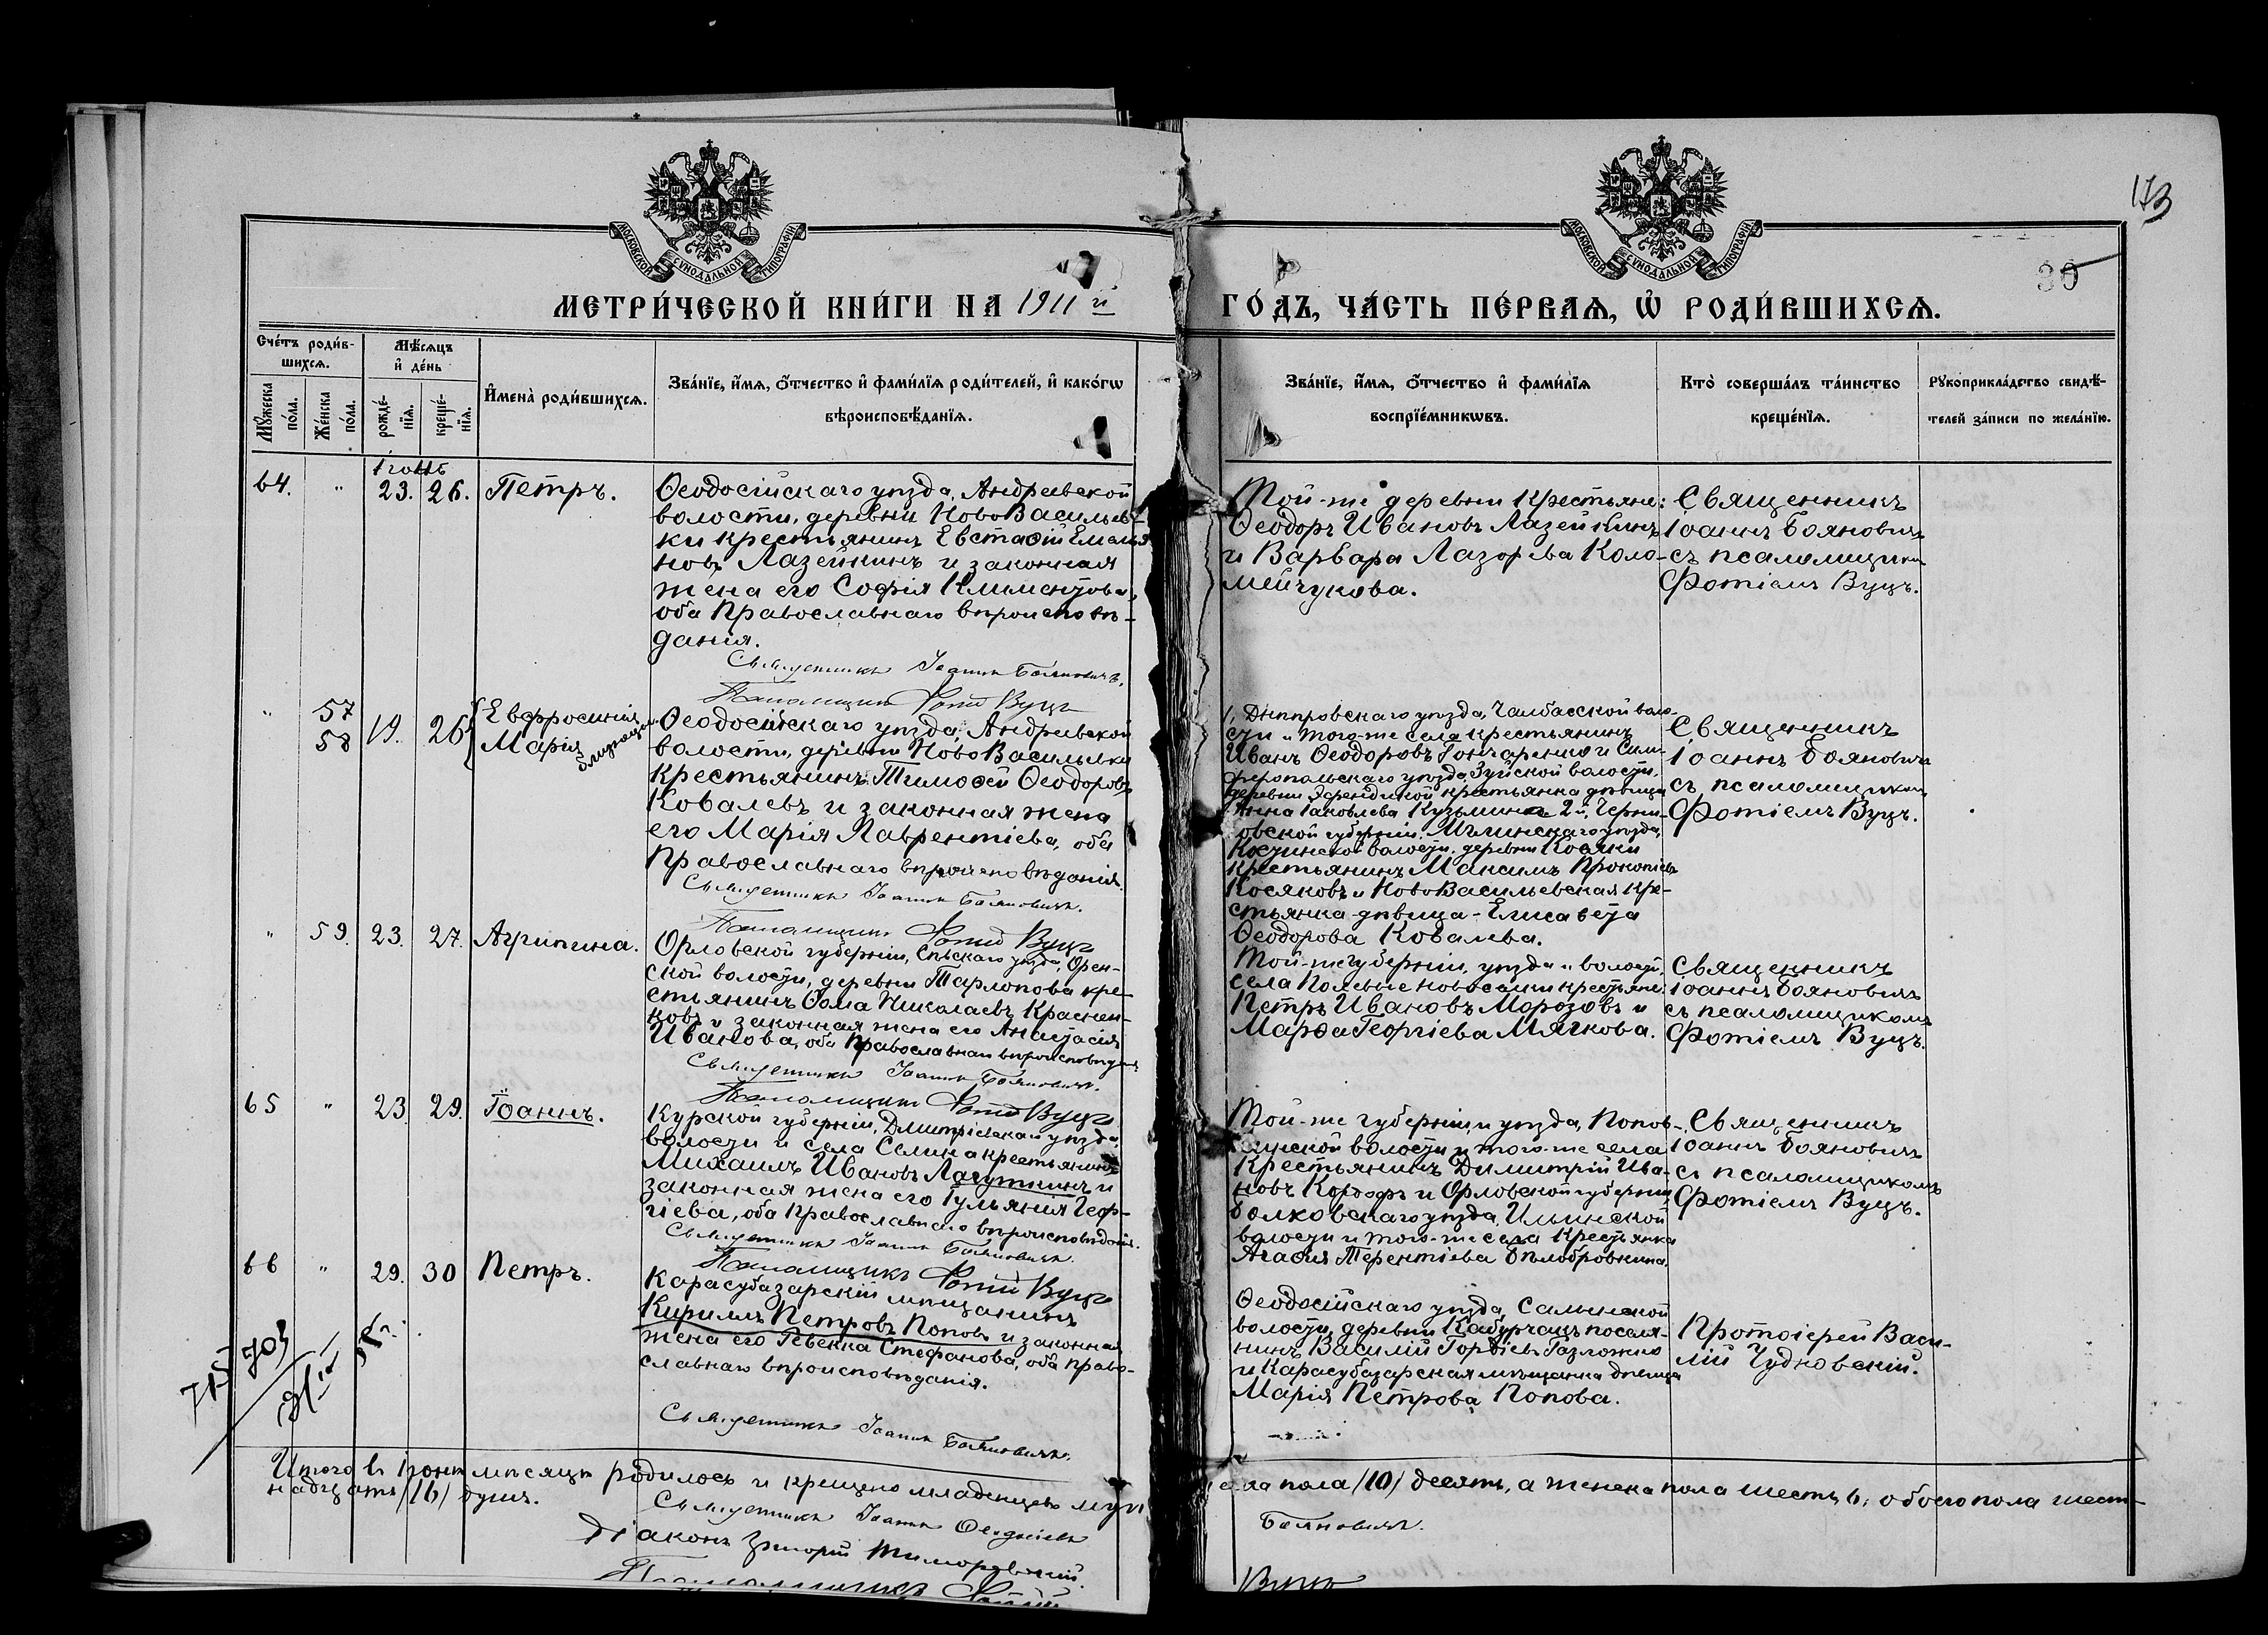 173
30
МОСКОВСКОЙ СУНОДАЛЬНОЙ ТИПОГРАФІИ
МОСКОВСКОЙ СУНОДАЛЬНОЙ ТИПОГРАФІИ
МЕТРИ́ЧЕСКОЙ КНИ́ГИ НА 1911 й
ГО́ДЪ, ЧА́СТЬ ПЕ́РВАѦ, Ѡ҆ РОДИ́ВШИХСѦ.
Сче́тъ роди́в-
шихсѧ.
Мѹ́жеска по́ла.
Же́нска по́ла.
Мѣ́сѧцъ
и҆ де́нь
рожде́-
нїѧ.
креще́-
нїѧ.
И҆мена̀ роди́вшихсѧ.
Зва́нїе, и҆́мѧ, ѻ҆́тчество и҆ фами́лїѧ роди́телей, и҆ како́гѡ
вѣроисповѣ́данїѧ.
Зва́нїе, и҆́мѧ, ѻ҆́тчество и҆ фами́лїѧ
воспрїе́мникѡвъ.
Кто̀ соверша́лъ та́инство
креще́нїѧ.
Рꙋкоприкла́дство свидѣ́-
телей за́писи по жела́нїю.
Іюнь
64. " 23. 26. Петръ.
Ѳеодосійскаго уѣзда, Андреевской
волости, деревни НовоВасильев-
ки крестьянинъ Евстафій Емелья
новъ Лазейкинъ и законная
жена его Софія Климентова,
оба Православнаго вѣроисповѣ-
данія.
Священникъ Іоаннъ Бояновичъ.
Псаломщикъ Фотій Вуцъ
Той-же деревни крестьяне:
Ѳеодоръ Ивановъ Лазейкинъ
и Варвара Лазорева Коло-
мейчукова.
Священникъ
Іоаннъ Бояновичъ
съ псаломщикомъ
Фотіемъ Вуцъ.
" 57 58 19. 26 Евфросинія Марія близнецы
Ѳеодосійскаго уѣзда, Андреевской
волости, деревни НовоВасильевки
крестьянинъ Тимоѳей Ѳеодоровъ
Ковалевъ и законная жена
его Марія Лаврентіева, оба
Православнаго вѣроисповѣданія.
Священникъ Іоаннъ Бояновичъ.
Псаломщикъ Фотій Вуцъ
1, Днѣпровскаго уѣзда, Чалбасской воло-
сти и того-же села крестьянинъ
Иванъ Ѳеодоровъ Гончаренко и Сим-
феропольскаго уѣзда, Зуйской волости,
деревни крестьянка дѣвица
Анна Іаковлева Кузьмина 2й, Черни-
говской губерніи, Мглинскаго уѣзда,
волости, деревни
крестьянинъ Максимъ Прокопіевъ
Косяковъ и НовоВасильевская кре-
стьянка-дѣвица-Елисавета
Ѳеодорова Ковалева.
Священникъ
Іоаннъ Бояновичъ
съ псаломщикомъ
Фотіемъ Вуцъ.
" 59. 23. 27. Агрипина.
Орловской губерніи, Сѣвскаго уѣзда,
ской волости, деревни кре-
стьянинъ Ѳома Николаевъ Краснен-
ковъ и законная жена его Анастасія
Иванова, оба Православнаго вѣроисповѣданія
Священникъ Іоаннъ Бояновичъ.
Псаломщикъ Фотій Вуцъ
Той-же губерніи, уѣзда и волости,
села крестьяне:
Петръ Ивановъ Морозовъ и
Марѳа Георгіева Мягкова.
Священникъ
Іоаннъ Бояновичъ
съ псаломщикомъ
Фотіемъ Вуцъ.
65 " 23. 29. Іоаннъ.
Курской губерніи, Дмитріевскаго уѣзда,
волости и села Селина крестьянинъ
Михаилъ Ивановъ Лагуткинъ и
законная жена его Іульянія Геор-
гіева, оба Православнаго вѣроисповѣданія.
Священникъ Іоаннъ Бояновичъ.
Псаломщикъ Фотій Вуцъ
Той-же губерніи и уѣзда, Попов-
кинской волости и того-же села
крестьянинъ Димитрій Ива-
новъ и Орловской губерніи
Болховскаго уѣзда, Ильинской
волости и того-же села крестьянка
Агафія Терентіева Бѣлобровкина.
Священникъ
Іоаннъ Бояновичъ
съ псаломщикомъ
Фотіемъ Вуцъ.
66 " 29. 30 Петръ.
Карасубазарскій мѣщанинъ
Кириллъ Петровъ Поповъ и законная
жена его Ревекка Стефанова, оба право-
славнаго вѣроисповѣданія.
Священникъ Іоаннъ Бояновичъ.
Ѳеодосійскаго уѣзда,
волости, деревни поселя-
нинъ Василій Гордіевъ
и Карасубазарская мѣщанка дѣвица
Марія Петрова Попова.
Протоіерей Васи-
лій Чудновскій.
Итого въ Іюнѣ мѣсяцѣ родилось и крещено младенцевъ муж
еска пола /10/ десять, а женска пола шесть, 6; обоего пола шест-
надцать /16/ душъ.
Священникъ Іоаннъ
Бояновичъ.
Діаконъ Григорій
Псаломщикъ Фотій
Вуцъ